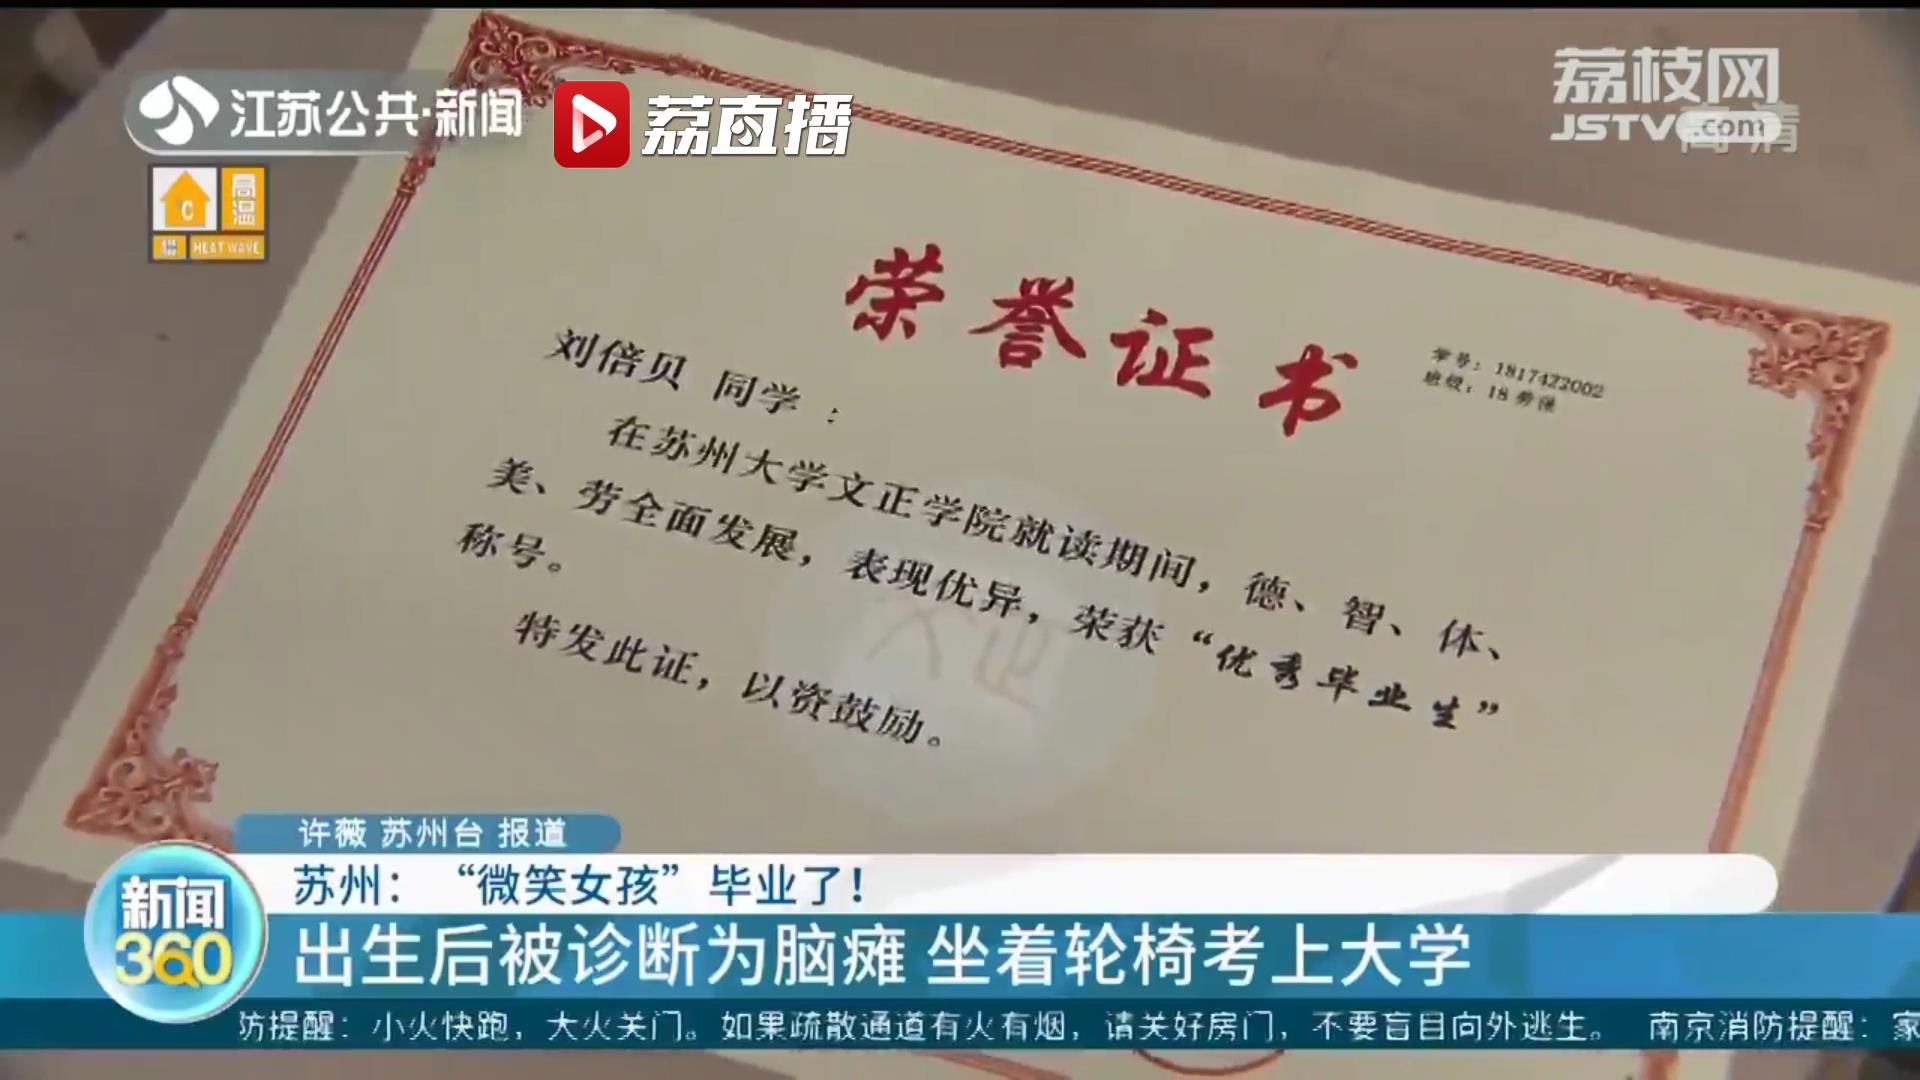 江苏公共·新闻
荔直播
荔枝网
JSTV.com
高清
高温
橙
HEAT WAVE
荣誉证书
学号：1817422002
班级：18劳保
刘倍贝 同学：
在苏州大学文正学院就读期间，德、智、体、
美、劳全面发展，表现优异，荣获“优秀毕业生”
称号。
特发此证，以资鼓励。
许薇 苏州台 报道
苏州：“微笑女孩”毕业了！
新闻
360
出生后被诊断为脑瘫 坐着轮椅考上大学
防提醒：小火快跑，大火关门。如果疏散通道有火有烟，请关好房门，不要盲目向外逃生。 南京消防提醒：家